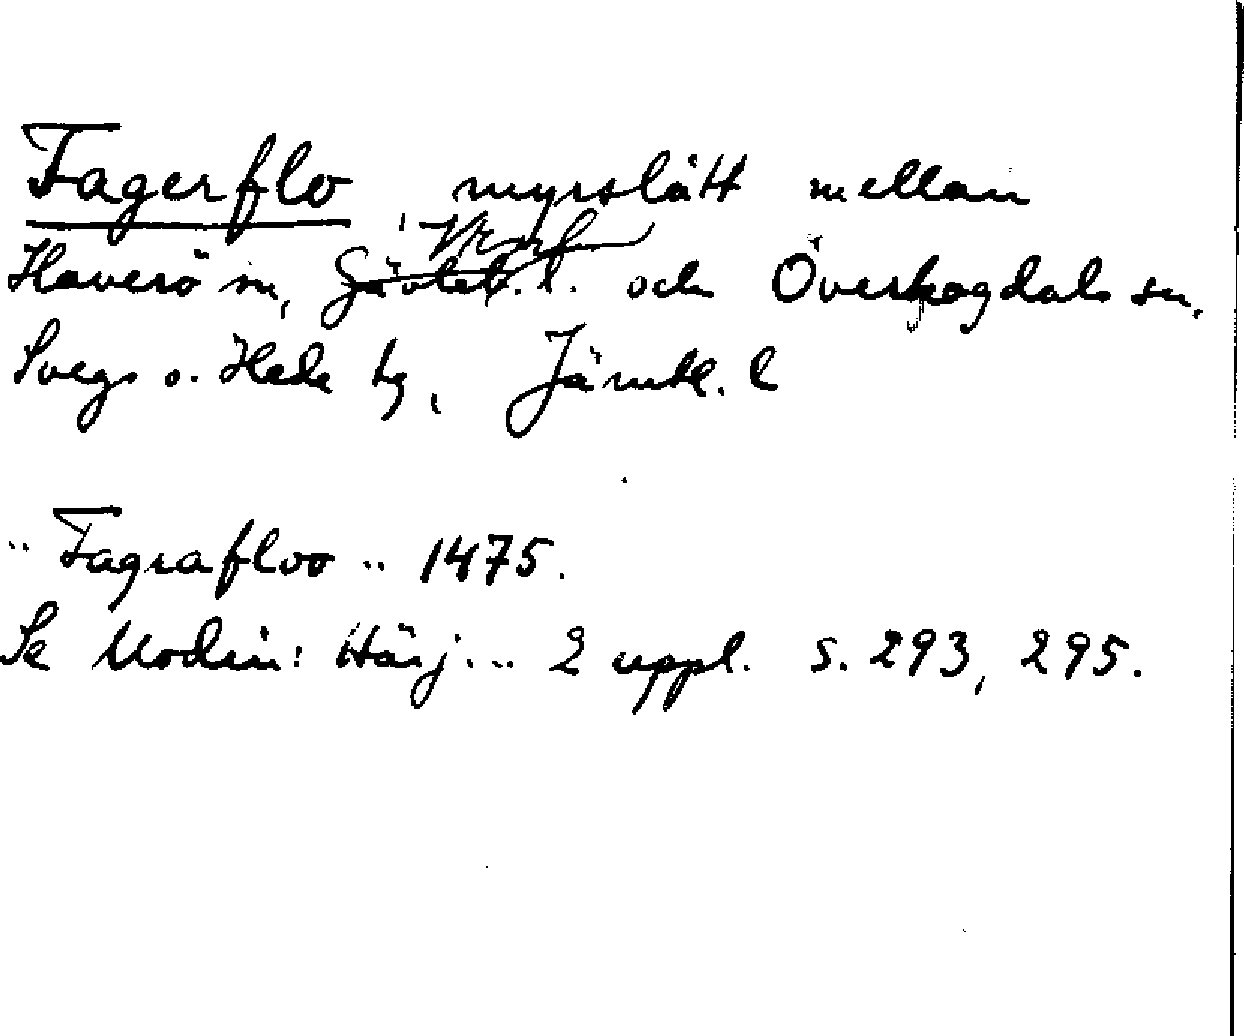 Fagerflo, myrslått mellan
Haverö sn, Vnorl. l. och Överhogdals sn,
Svegs o. Hede tg, Jämtl. l
"Fagrafloo" 1475.
Se Modin: Härj... 2 uppl. s. 293, 295.